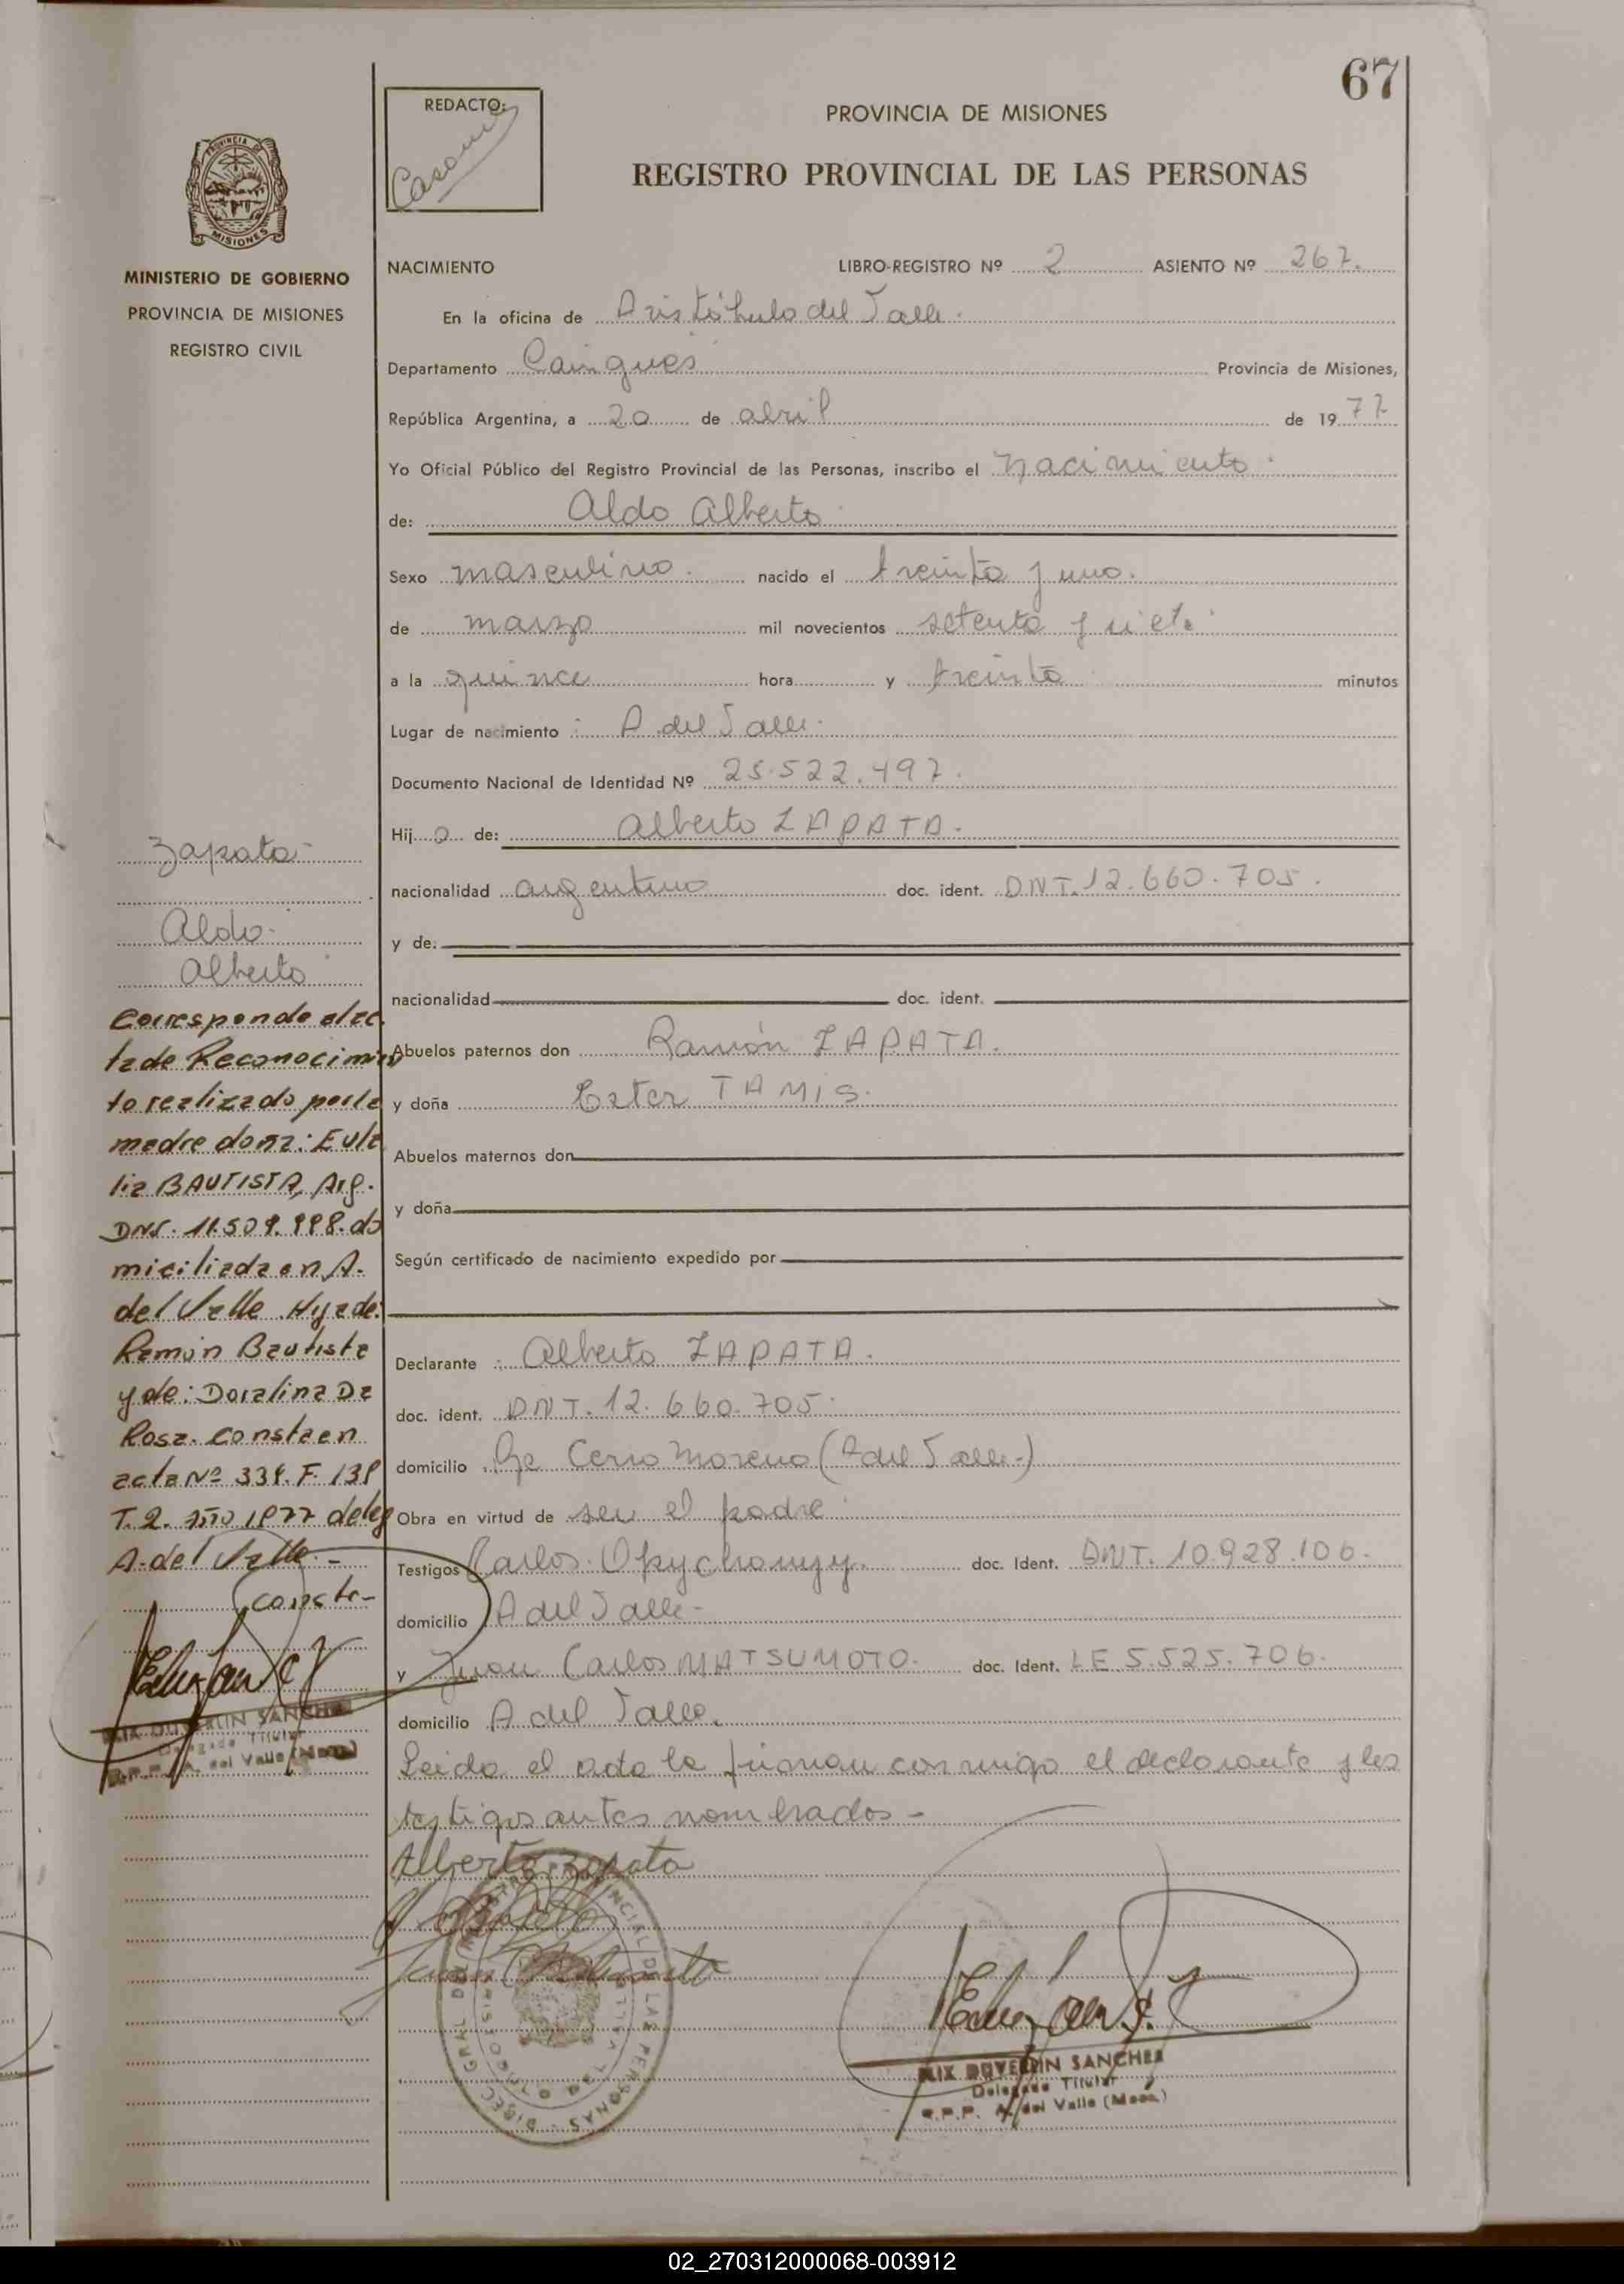 67
REDACTO:
PROVINCIA DE MISIONES
REGISTRO PROVINCIAL DE LAS PERSONAS
PROVINCIA DE
MISIONES
MINISTERIO DE GOBIERNO
PROVINCIA DE MISIONES
REGISTRO CIVIL
NACIMIENTO LIBRO-REGISTRO Nº 2 ASIENTO Nº 267.
En la oficina de Aristóbulo del Valle.
Departamento Cainguás Provincia de Misiones,
República Argentina, a 20 de abril de 1977
Yo Oficial Público del Registro Provincial de las Personas, inscribo el nacimiento
de: Aldo Alberto
Sexo masculino. nacido el treinta y uno.
de marzo mil novecientos setenta y siete
a la quince hora y treinta minutos
Lugar de nacimiento : A. del Valle.
Documento Nacional de Identidad Nº 25.522.497.
Hijo de: Alberto ZAPATA.
nacionalidad argentino doc. ident. DNI. 12.660.705.
y de:
nacionalidad doc. ident.
Abuelos paternos don Ramón ZAPATA.
y doña Ester TAMIS.
Abuelos maternos don
y doña
Según certificado de nacimiento expedido por
Declarante : Alberto ZAPATA.
doc. ident. DNI. 12.660.705.
domicilio Pje Cerro Moreno (A del Valle-)
Obra en virtud de ser el padre
Testigos Carlos doc. Ident. DNI. 10.928.106.
domicilio A del Valle-
y Juan Carlos MATSUMOTO. doc. Ident. LE 5.525.706.
domicilio A del Valle.
Leida el acta la firman conmigo el declarante y los
testigos antes nombrados -
Alberto Zapata
Zapata-
Aldo-
Alberto
Corresponde al ac
ta de Reconocimien
to realizado por la
madre doña: Eula
lia BAUTISTA, Arg.
DNI. 11.509.998. do
miciliada en A.
del Valle. Hija de:
Ramón Bautista
y de: Doralina Da
Rosa. Consta en
acta Nº 339. F. 139
T. 2. año 1977 deleg
A. del Valle. -
Conste-
DUVERLIN SANCHEZ
Delegado Titular
R.P.P. A. del Valle (Mnes.)
DUVERLIN SANCHEZ
Delegado Titular
R.P.P. A. del Valle (Mnes.)
02_270312000068-003912